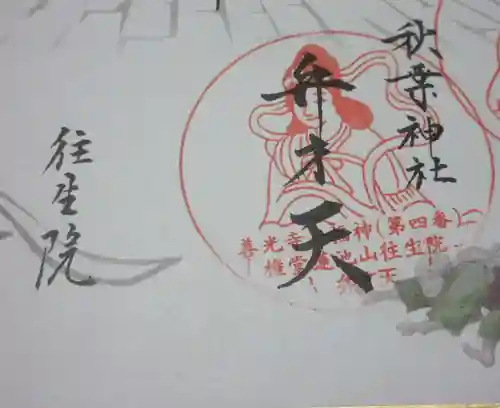 秋葉神社
弁才天
善光寺 福神(第四番)
権堂 蓮池山往生院
弁 天
往生院